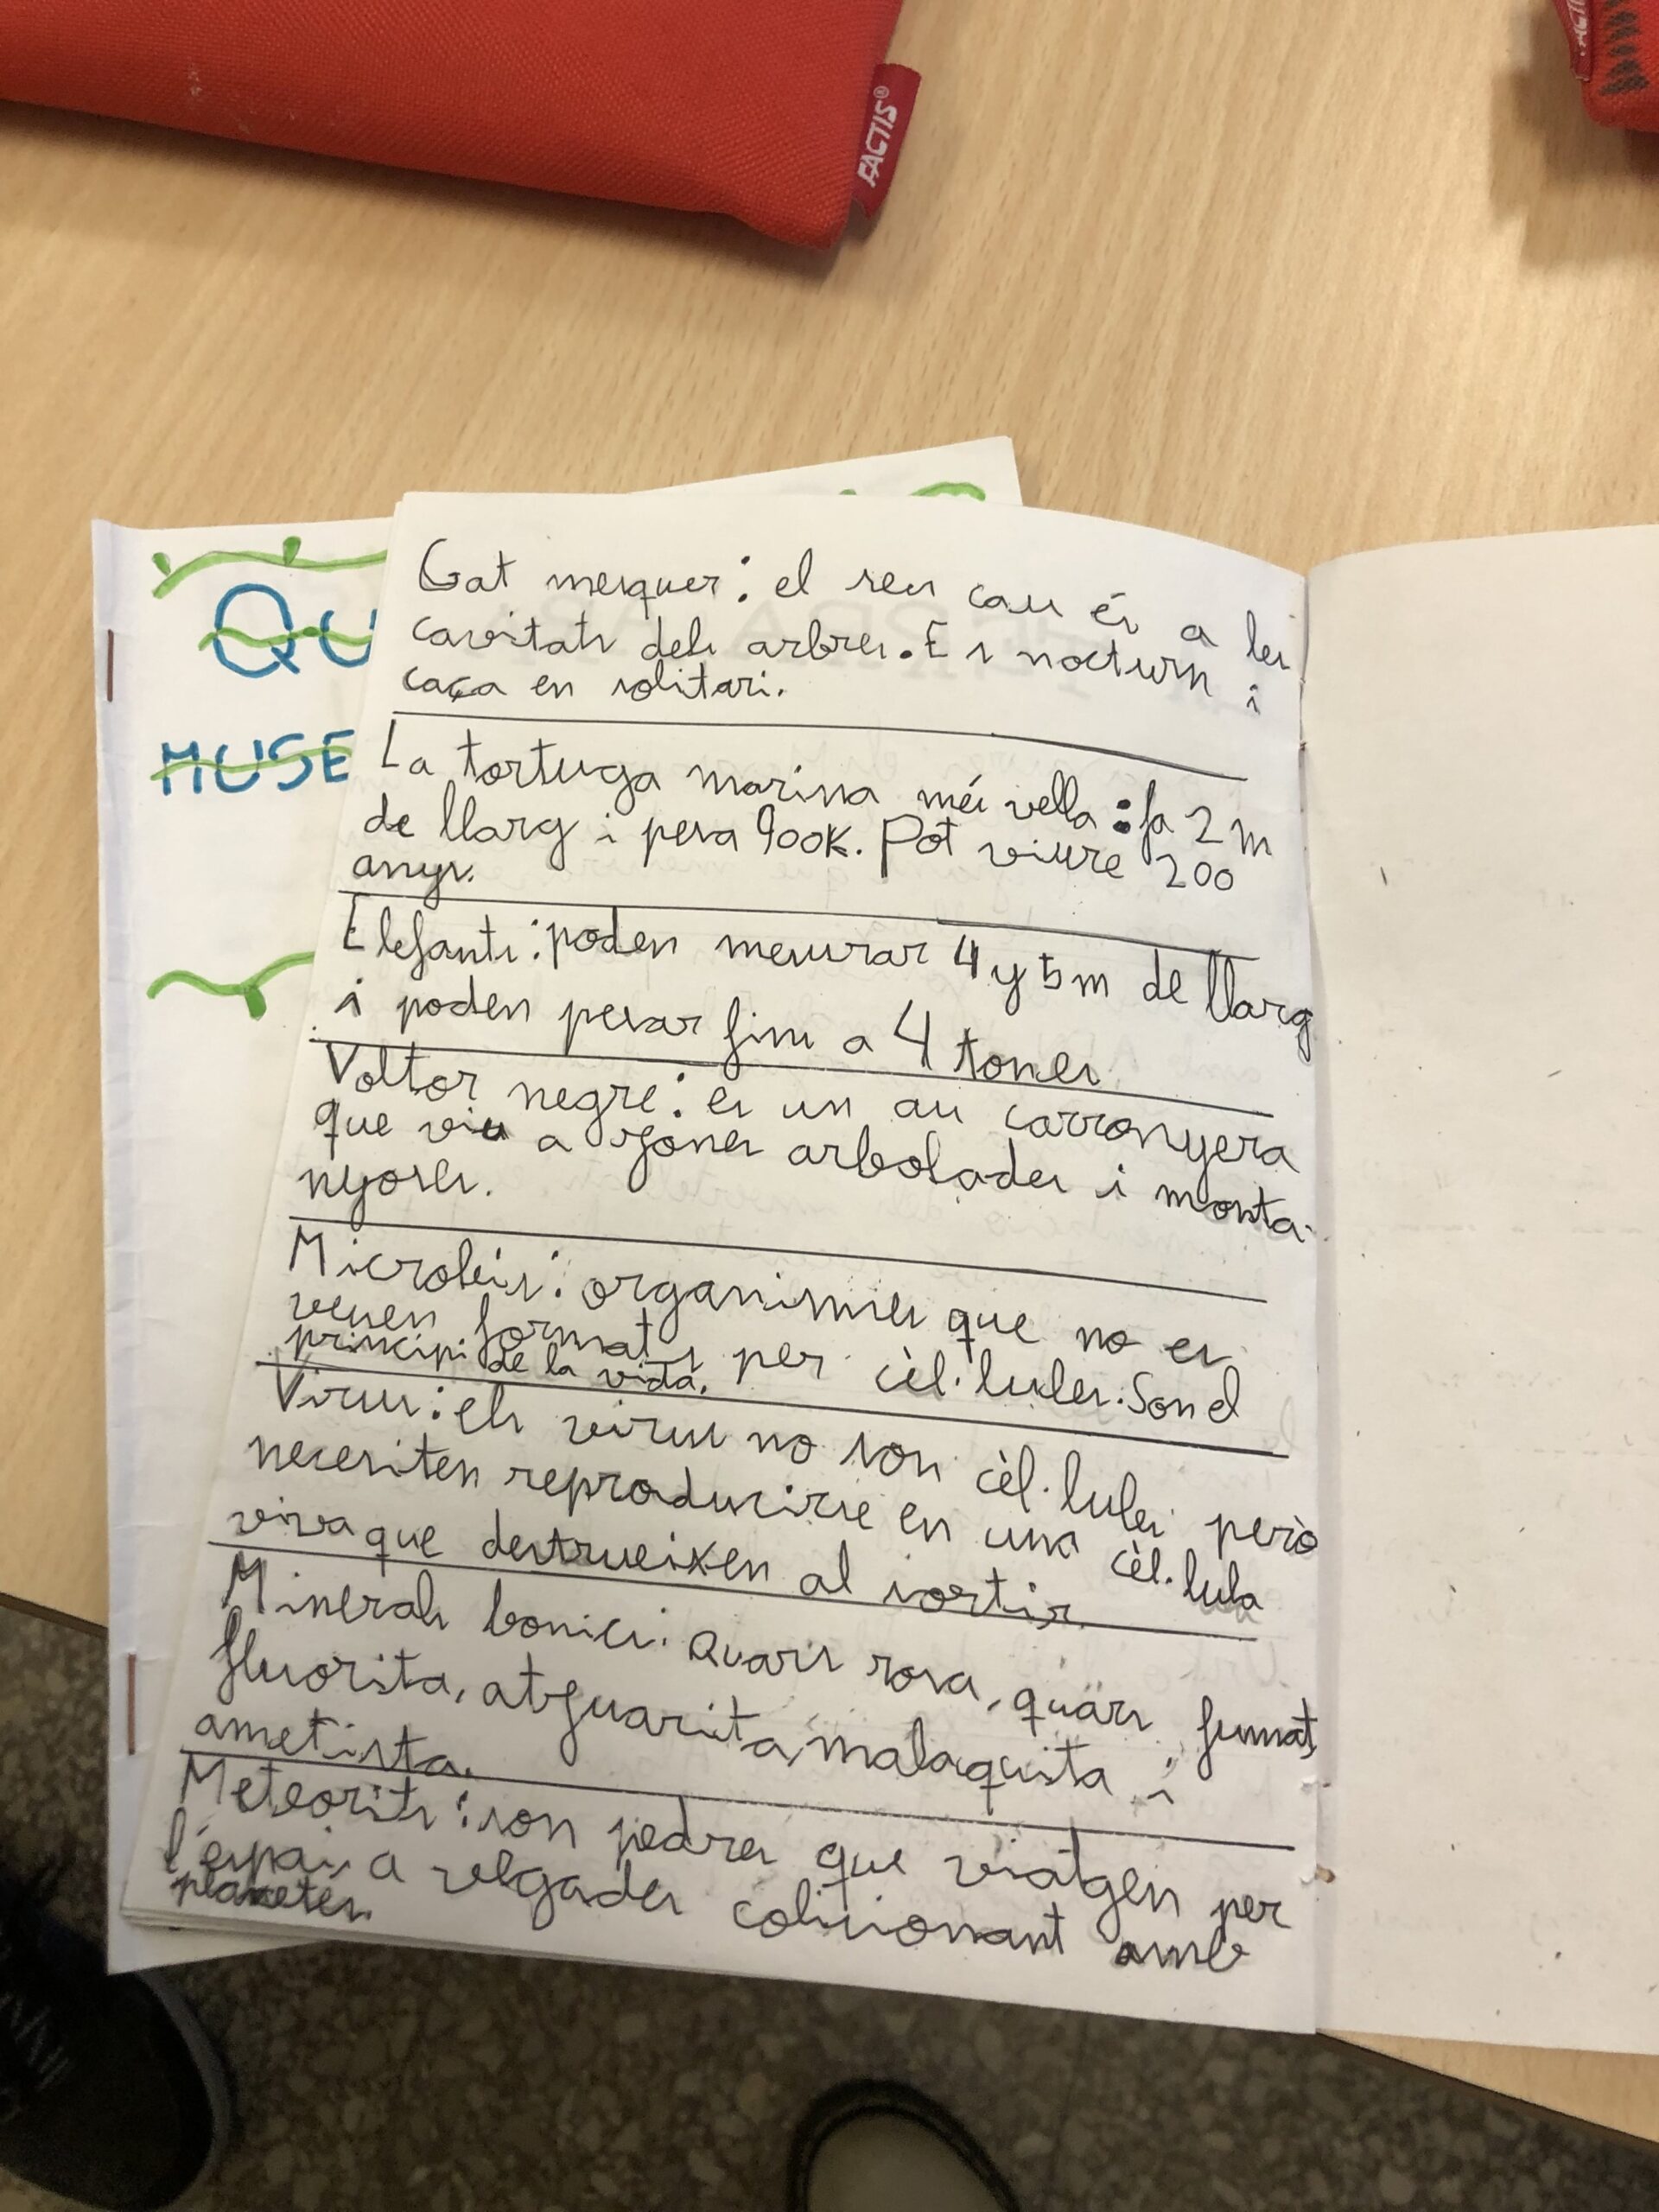 FACTIS®
QU
MUSE
Gat mesquer: el seu cau és a les
cavitats dels arbres. Es nocturn i
caça en solitari.
La tortuga marina més vella: fa 2 m
de llarg i pesa 900K. Pot viure 200
anys.
Elefants: poden mesurar 4 y 5 m de llarg
i poden pesar fins a 4 tones
Voltor negre: es un au carronyera
que viu a zones arbolades i monta-
nyoses.
Microbis: organismes que no es
veuen formats per cèl·lules. Son el
principi de la vida.
Virus: els virus no son cèl·lules però
necesiten reproducirse en una cèl·lula
viva que destrueixen al sortir.
Minerals bonics: Quars rosa, quars fumat,
fluorita, atzuarita, malaquita i
ametista.
Meteorits: son pedres que viatgen per
l'espai, a velgades colisionant amb
planetes.